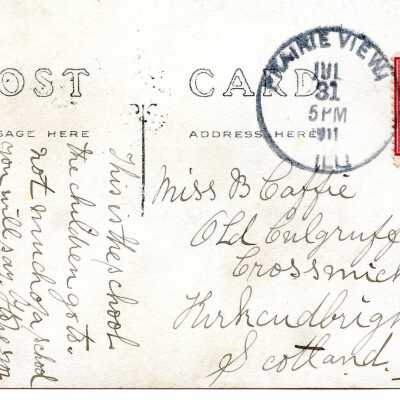 OST CARD
SAGE HERE
ADDRESS HERE
PRAIRIE VIEW
JUL
31
5 PM
1911
ILL
This is the school
the children go to.
not much of a school
you will say
Miss B Caffie
Old Culgruff
Crossmich
Kirkcudbrigh
Scotland.